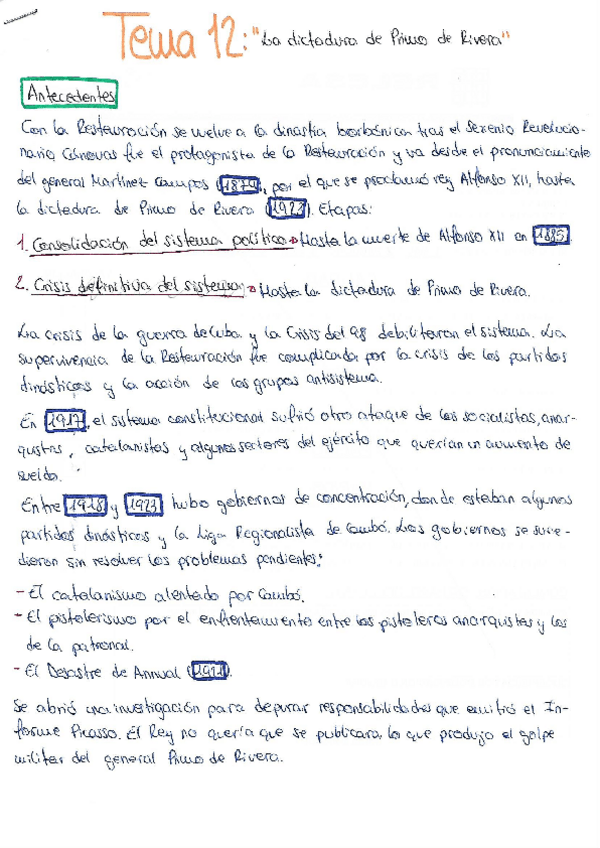 Tema 12: "La dictadura de Primo de Rivera"
Antecedentes
Con la Restauración se vuelve a la dinastía borbónica tras el Sexenio Revolucio-
nario Cánovas fue el protagonista de la Restauración y va desde el pronunciamiento
del general Martínez Campos (1874), por el que se proclamó rey Alfonso XII, hasta
la dictadura de Primo de Rivera (1923). Etapas:
1. Consolidación del sistema político → Hasta la muerte de Alfonso XII en 1885.
2. Crisis definitiva del sistema → Hasta la dictadura de Primo de Rivera.
La crisis de la guerra de Cuba y la Crisis del 98 debilitaron el sistema. La
supervivencia de la Restauración fue complicada por la crisis de los partidos
dinásticos y la acción de los grupos antisistema.
En 1917, el sistema constitucional sufrió otro ataque de los socialistas, anar-
quistas, catalanistas y algunos sectores del ejército que querían un aumento de
sueldo.
Entre 1918 y 1923 hubo gobiernos de concentración, donde estaban algunos
partidos dinásticos y la Liga Regionalista de Cambó. Los gobiernos se suce-
dieron sin resolver los problemas pendientes:
- El catalanismo alentado por Cambó.
- El pistolerismo por el enfrentamiento entre los pistoleros anarquistas y los
de la patronal.
- El Desastre de Annual (1921).
Se abrió una investigación para depurar responsabilidades que emitió el In-
forme Picasso. El Rey no quería que se publicara, lo que produjo el golpe
militar del general Primo de Rivera.